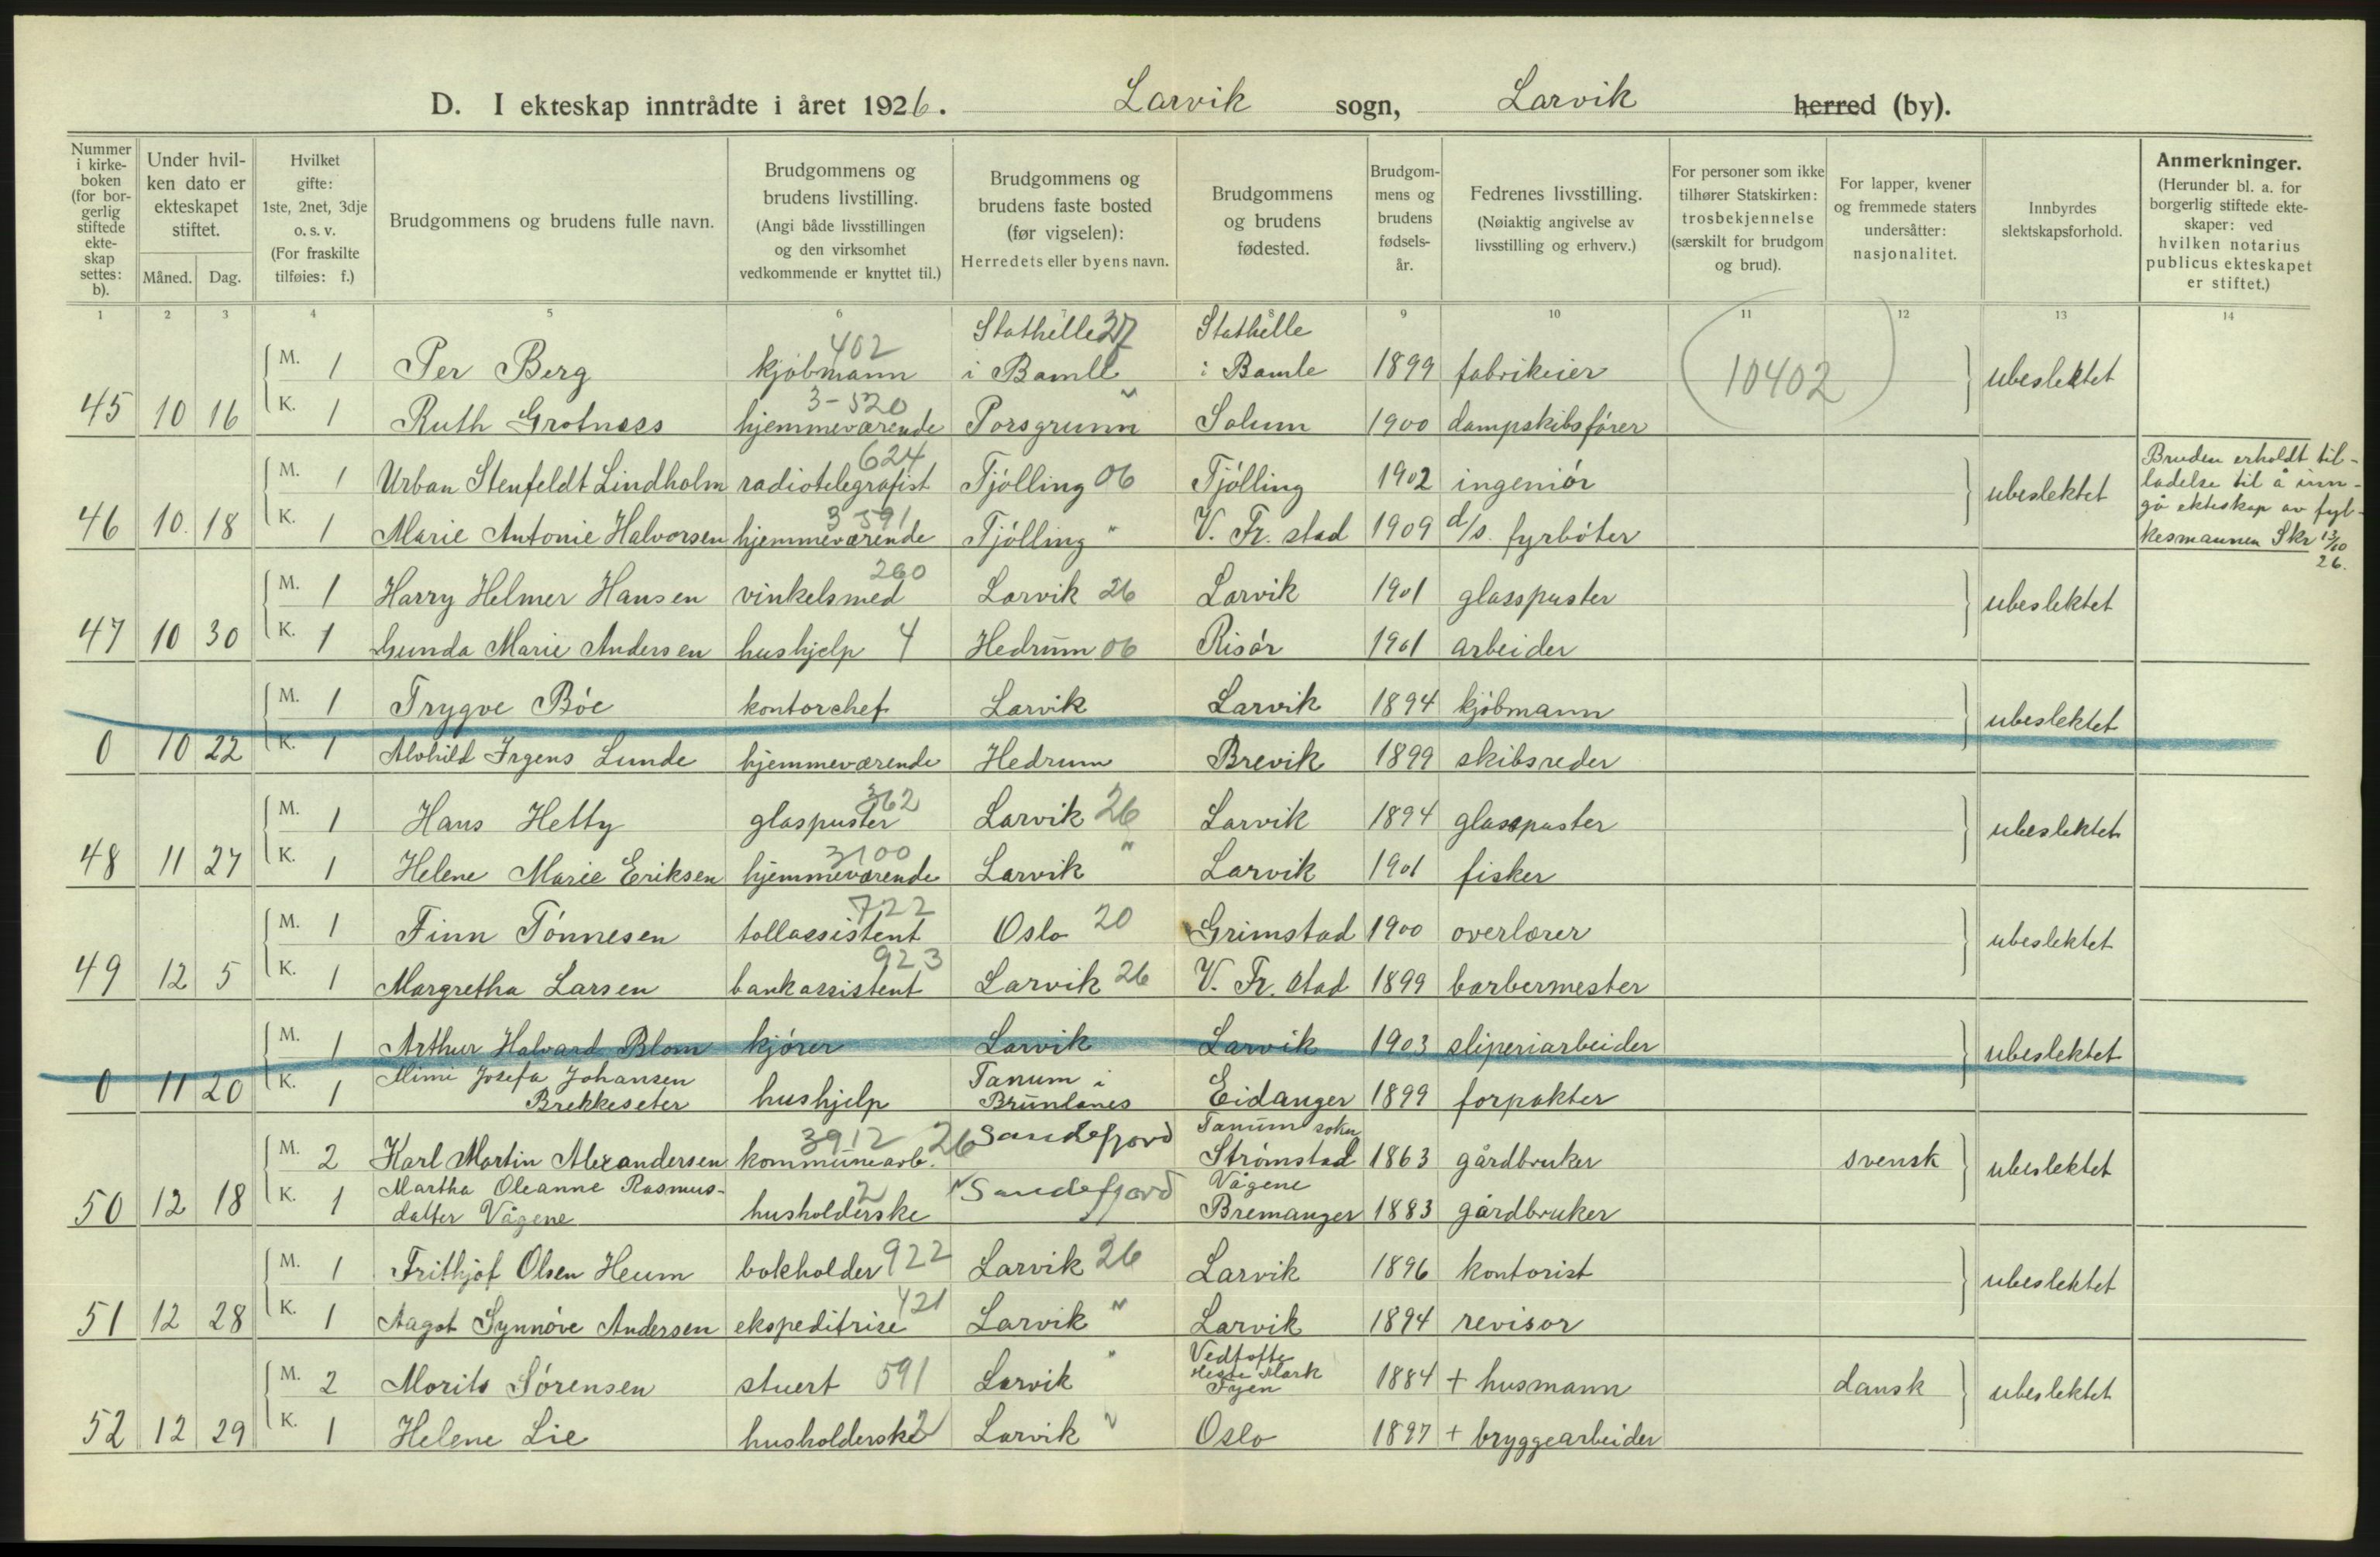 D. I ekteskap inntrådte i året 1926. Larvik sogn, Larvik herred (by).
Nummer i kirkeboken (for borgerlig stiftede ekteskap settes: b).
Under hvilken dato er ekteskapet stiftet.
Måned. Dag.
Hvilket gifte: 1ste, 2net, 3dje o. s. v. (For fraskilte tilføies: f.)
Brudgommens og brudens fulle navn.
Brudgommens og brudens livstilling. (Angi både livsstillingen og den virksomhet vedkommende er knyttet til.)
Brudgommens og brudens faste bosted (før vigselen): Herredets eller byens navn.
Brudgommens og brudens fødested.
Brudgommens og brudens fødselsår.
Fedrenes livsstilling. (Nøiaktig angivelse av livsstilling og erhverv.)
For personer som ikke tilhører Statskirken: trosbekjennelse (særskilt for brudgom og brud).
For lapper, kvener og fremmede staters undersåtter: nasjonalitet.
Innbyrdes slektskapsforhold.
Anmerkninger. (Herunder bl. a. for borgerlig stiftede ekteskaper: ved hvilken notarius publicus ekteskapet er stiftet.)
1 2 3 4 5 6 7 8 9 10 11 12 13 14
402 Stathelle 37 Stathelle
M. 1 Per Berg kjøbmann i Bamle i Bamle 1899 fabrikeier 10402 ubeslektet
3-520 "
45 10 16 K. 1 Ruth Grotnæss hjemmeværende Porsgrunn Solum 1900 dampskibsfører
624
M. 1 Urban Stenfeldt Lindholm radiotelegrafist Tjølling 06 Tjølling 1902 ingeniør ubeslektet
3 591
46 10. 18 K. 1 Marie Antonie Halvorsen hjemmeværende Tjølling " V. Fr. stad 1909 d/s. fyrbøter
Bruden erholdt til-
ladelse til å inn-
gå ekteskap av fyl-
kesmannen Skr 13/10
26.
260
M. 1 Harry Helmer Hansen vinkelsmed Larvik 26 Larvik 1901 glasspuster ubeslektet
47 10 30 K. 1 Gunda Marie Andersen hushjelp 4 Hedrum 06 Risør 1901 arbeider
M. 1 Trygve Bøe kontorchef Larvik Larvik 1894 kjøbmann ubeslektet
0 10 22 K. 1 Alvhild Irgens Lunde hjemmeværende Hedrum Brevik 1899 skibsreder
362
M. 1 Hans Hetty glaspuster Larvik 26 Larvik 1894 glasspuster ubeslektet
3100 "
48 11 27 K. 1 Helene Marie Eriksen hjemmeværende Larvik Larvik 1901 fisker
722
M. 1 Finn Tønnesen tollassistent Oslo 20 Grimstad 1900 overlærer ubeslektet
923
49 12 5 K. 1 Margretha Larsen bankassistent Larvik 26 V. Fr. stad 1899 barbermester
M. 1 Arthur Halvard Blom kjører Larvik Larvik 1903 sliperiarbeider ubeslektet
Mimi Josefa Johansen Tanum i
0 11 20 K. 1 Brekkeseter hushjelp Brunlanes Eidanger 1899 forpakter
3912 26 Sandefjord Tanum sokn
M. 2 Karl Martin Alexandersen kommunearb. Strømstad 1863 gårdbruker svensk ubeslektet
Martha Oleanne Rasmus- 2 " Sandefjord Vågene
50 12 18 K. 1 datter Vågene husholderske Bremanger 1883 gårdbruker
M. 1 Frithjof Olsen Heum bokholder 922 Larvik 26 Larvik 1896 kontorist ubeslektet
421 "
51 12 28 K. 1 Aagot Synnøve Andersen ekspeditrise Larvik Larvik 1894 revisor
" Vedtofte
Mark
M. 2 Morits Sørensen stuert 591 Larvik Fyen 1884 + husmann dansk ubeslektet
52 12 29 K. 1 Helene Lie husholderske 2 Larvik " Oslo 1897 + bryggearbeider